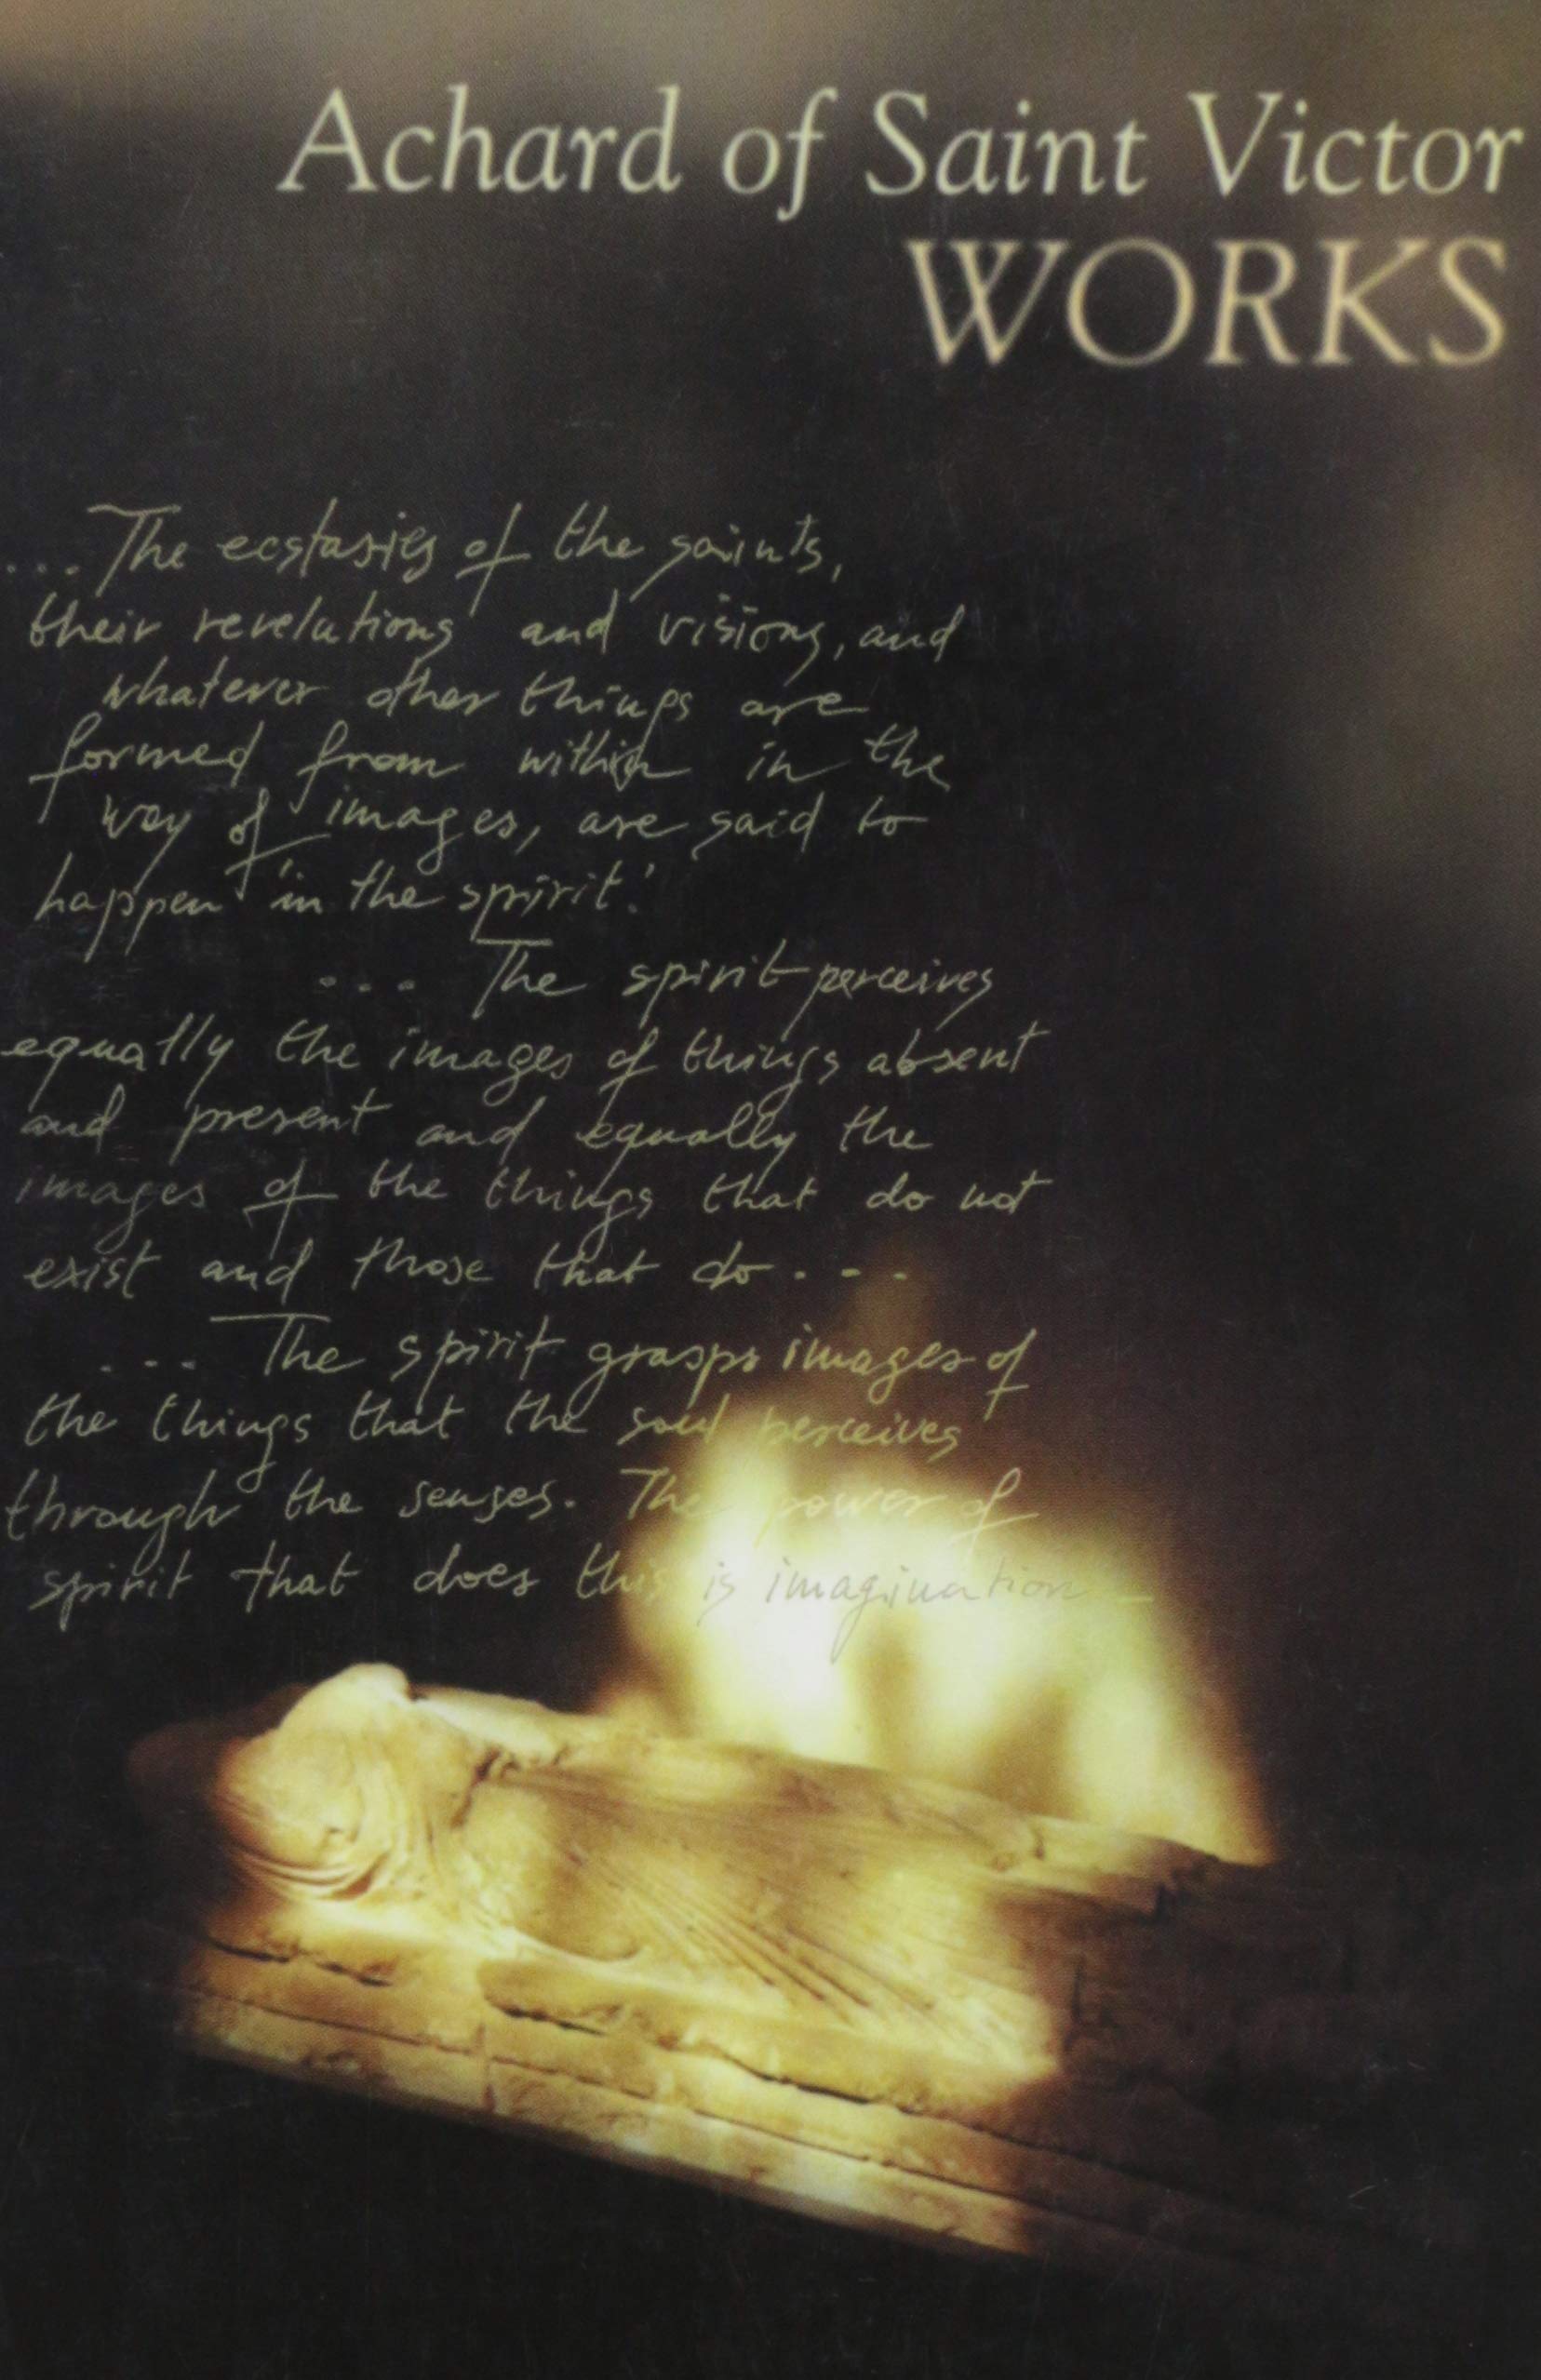 Achard of Saint Victor
WORKS
...The ecstasies of the saints,
their revelations and visions, and
whatever other things are
formed from within in the
way of images, are said to
happen 'in the spririt.'
... The spirit perceives
equally the images of things absent
and present and equally the
images of the things that do not
exist and those that do...
... The spirit grasps images of
the things that the soul perceives
through the senses. The power of
spirit that does this is imagination –